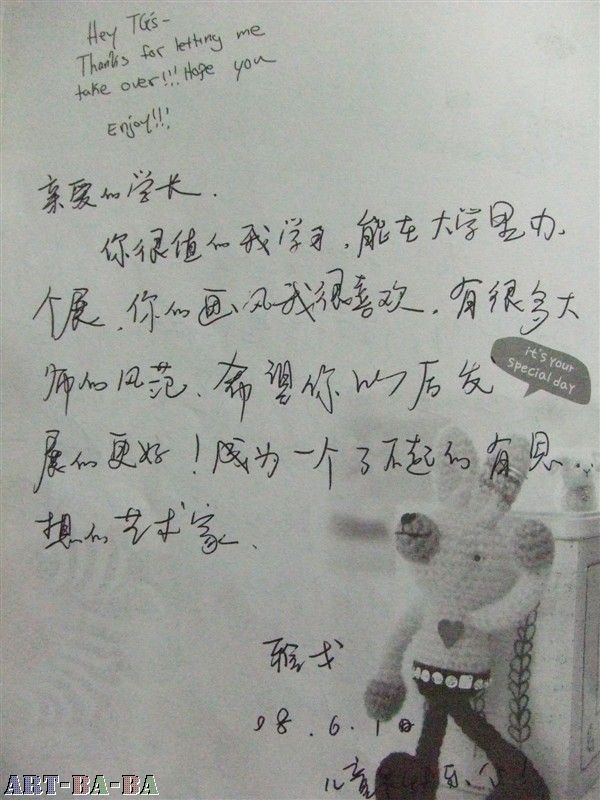 Hey TG's-
Thanks for letting me
take over!!! Hope you
Enjoy!!!
亲爱的学长.
你很值的我学习,能在大学里办
个展,你的画风我很喜欢,有很多大
师的风范,希望你以后发
展的更好!成为一个了不起的有思
想的艺术家.
it's your
special day
08.6.1日
儿童节快乐
ART-BA-BA